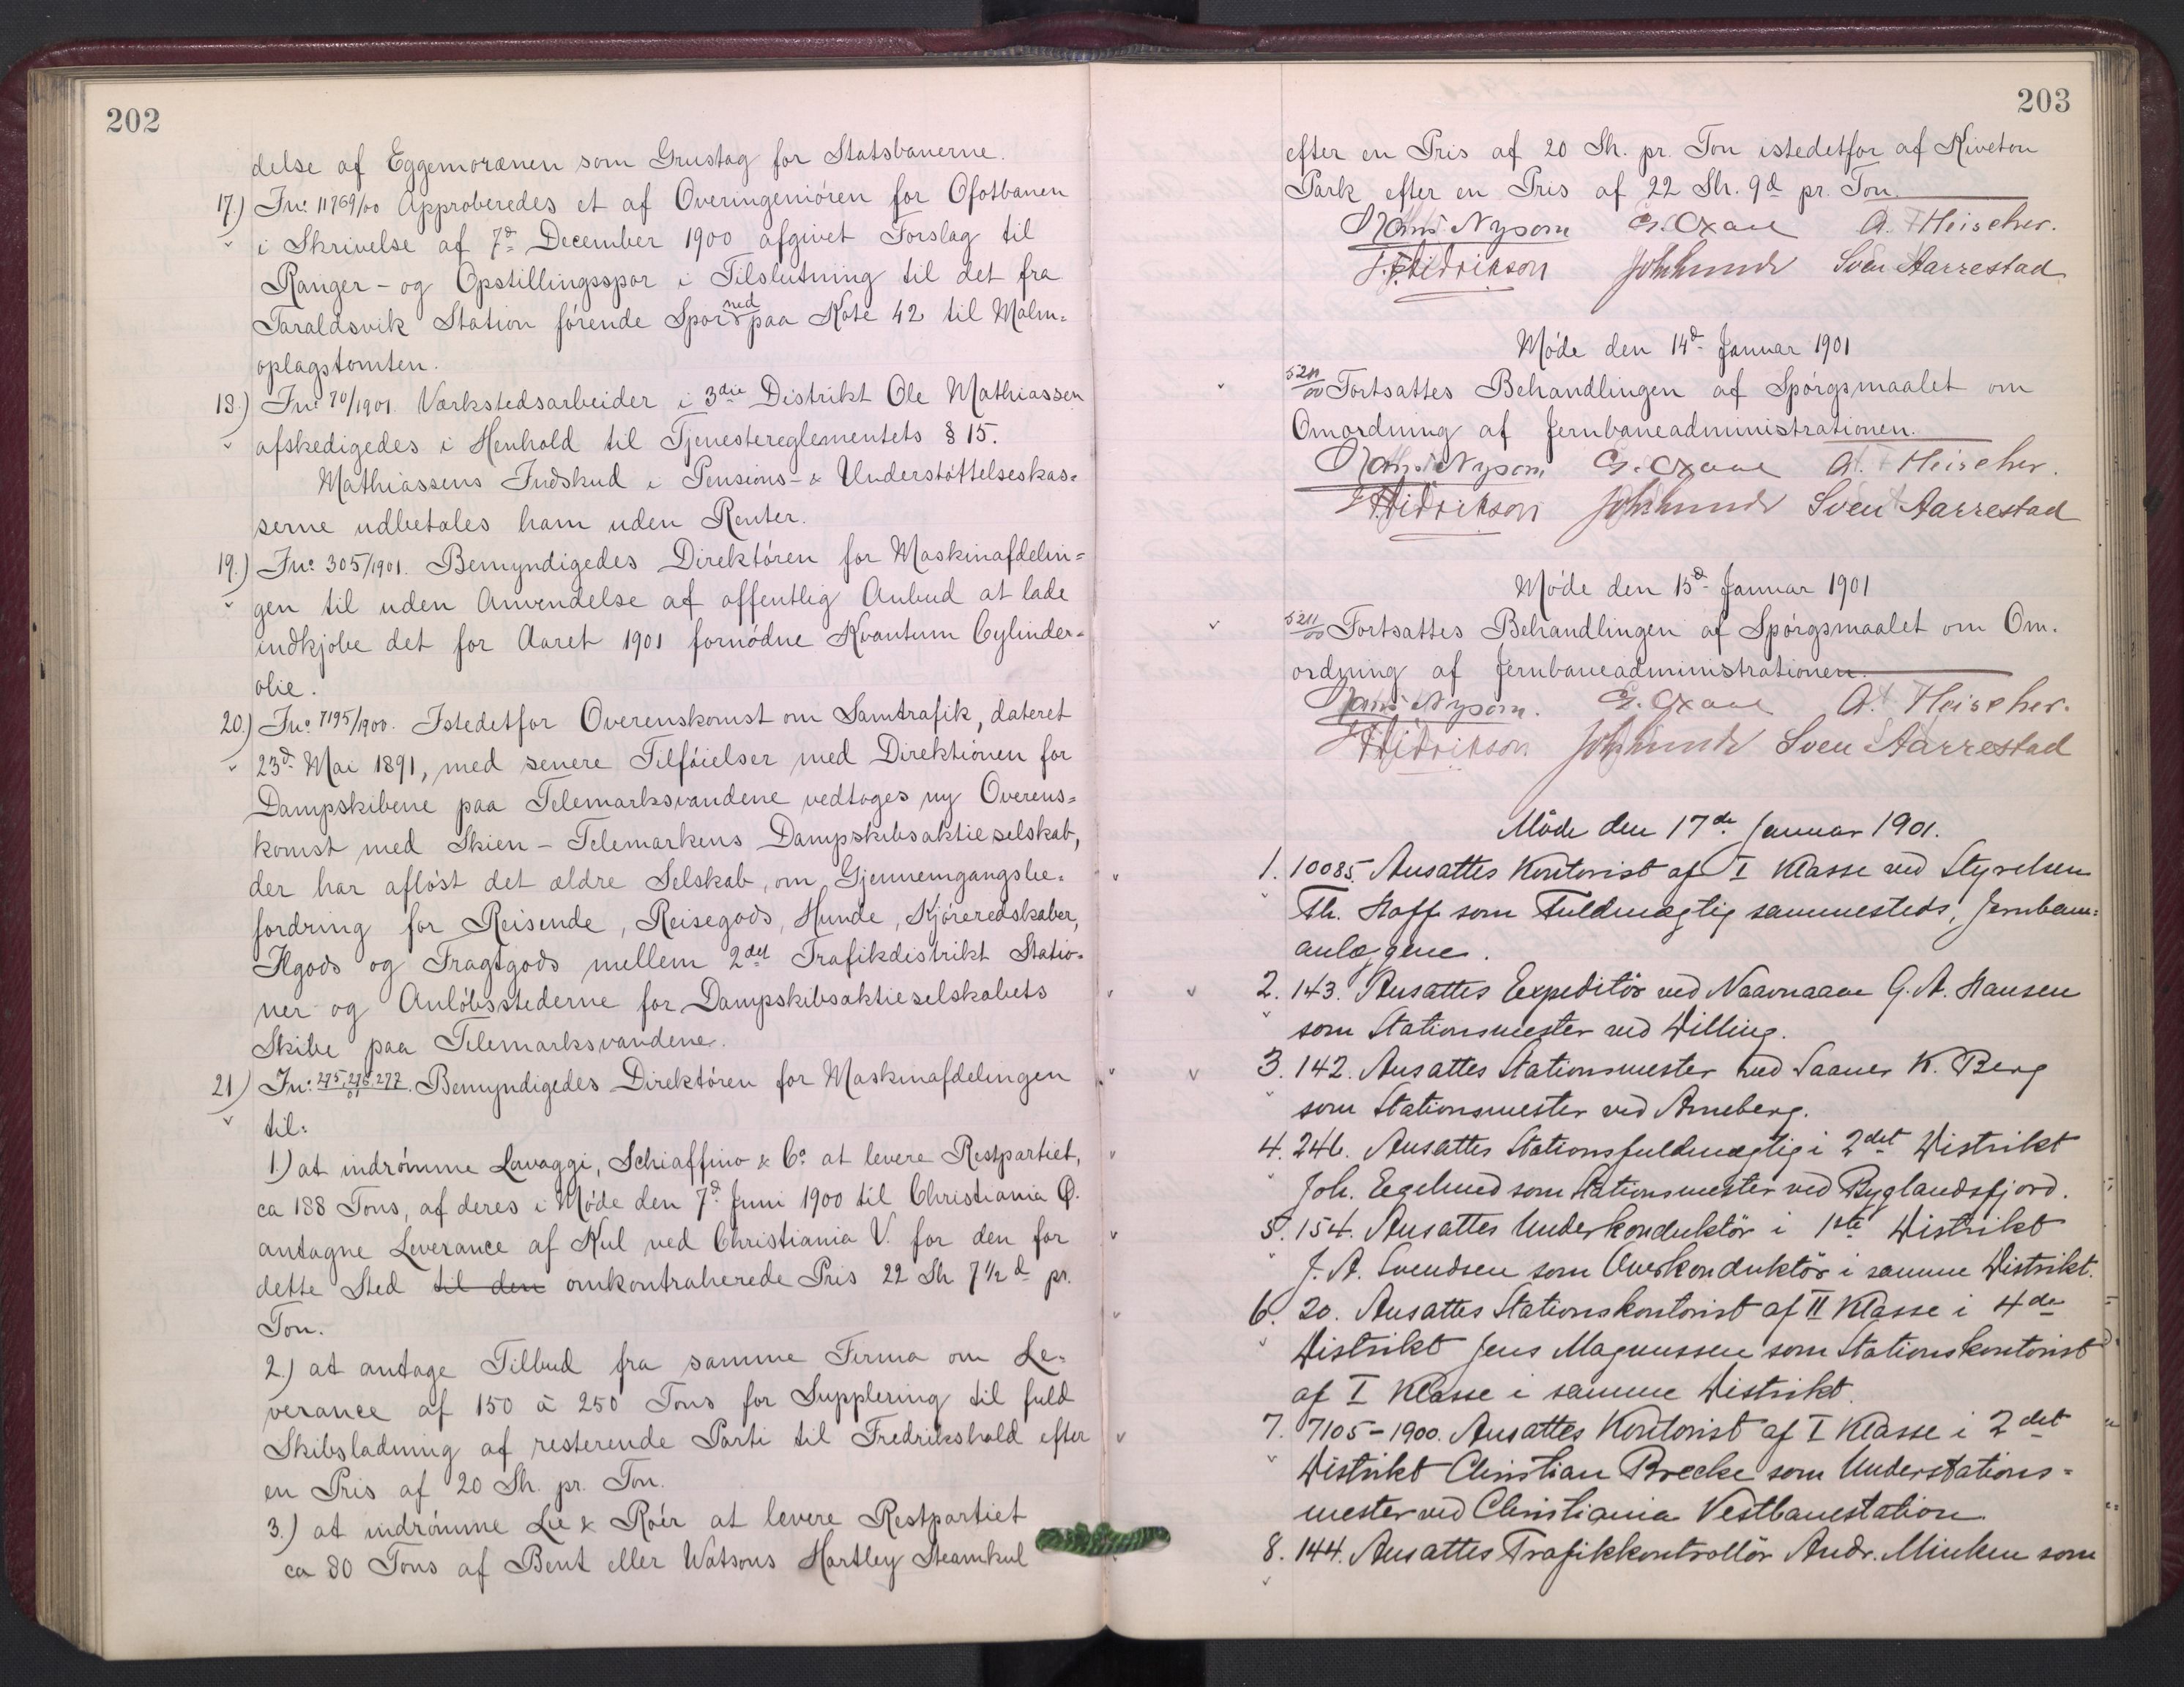 202
delse af Eggemorænen som Grustag for Statsbanerne.
17.) Jn: 11769/00 Approberedes et af Overingeniören for Ofotbanen
i Skrivelse af 7d December 1900 afgivet Forslag til
Ranger- og Opstillingsspor i Tilslutning til det fra
Taraldsvik Station förende Spor ned paa Kote 42 til Malm=
oplagstomten.
18.) Jn: 70/1901. Værkstedsarbeider i 3die Distrikt Ole Mathiassen
afskedigedes i Henhold til Tjenestereglementets § 15.
Mathiassens Indskud i Pensions- & Understöttelseskas=
serne udbetales ham uden Renter.
19.) Jn: 305/1901. Bemyndigedes Direktören for Maskinafdelin=
gen til uden Anvendelse af offentlig Anbud at lade
indkjöbe det for Aaret 1901 fornödne Kvantum Cylinder=
olie.
20.) Jn: 7195/1900. Istedetfor Overenskomst om Samtrafik, dateret
23d Mai 1891, med senere Tilföielser med Direktionen for
Dampskibene paa Telemarksvandene vedtoges ny Overens=
komst med Skien-Telemarkens Dampskibsaktieselskab,
der har aflöst det ældre Selskab, om Gjennemgangsbe=
fordring for Reisende, Reisegods, Hunde, Kjöreredskaber,
Ilgods og Fragtgods mellem 2det Trafikdistrikt Statio=
ner og Anlöbsstederne for Dampskibsaktieselskabets
Skibe paa Telemarksvandene.
21) Jn: 275, 276, 277/01. Bemyndigedes Direktören for Maskinafdelingen
til:
1) at indrömme Lavaggi, Schiaffino & Co at levere Restpartiet,
ca 188 Tons, af deres i Möde den 7d Juni 1900 til Christiania Ö.
antagne Leverance af Kul ved Christiania V. for den for
dette Sted til den omkontraherede Pris 22 Sh 7 1/2 d pr.
Ton.
2.) at antage Tilbud fra samme Firma om Le=
verance af 150 à 250 Tons for Supplering til fuld
Skibsladning af resterende Parti til Fredrikshald efter
en Pris af 20 Sh. pr. Ton.
3.) at indrömme Lie & Röer at levere Restpartiet
ca 80 Tons af Bent eller Watsons Hartley Steamkul
203
efter en Pris af 20 Sh. pr. Ton istedetfor af Kiveton
Park efter en Pris af 22 Sh. 9d pr. Ton.
Hans Nysom G. Oxaal A. Fleischer.
F. Hidrikson Joh Lunde Sven Aarrestad
Möde den 14d Januar 1901
5211/00 Fortsattes Behandlingen af Spörgsmaalet om
Omordning af Jernbaneadministrationen.
Hans Nysom G. Oxaal A. Fleischer.
F. Hidrikson Joh Lunde Sven Aarrestad
Möde den 15d Januar 1901
5211/00 Fortsattes Behandlingen af Spörgsmaalet om Om.
ordning af Jernbaneadministrationen.
Hans Nysom. G. Oxaal A. Fleischer.
F. Hidrikson Joh Lunde Sven Aarrestad
Möde den 17de Januar 1901.
1. 10085. Ansattes Kontorist af I Klasse ved Styrelsen
Th. Hoff som Fuldmægtig sammesteds, Jernbane=
anlæggene.
2. 143. Ansattes Expeditör ved Naavnaaen G. A. Hansen
som Stationsmester ved Dilling.
3. 142. Ansattes Stationsmester ved Saaner K. Berg
som Stationsmester ved Arneberg.
4. 246. Ansattes Stationsfuldmægtig i 2det Distrikt
Joh. Egelund som Stationsmester ved Byglandsfjord.
5. 154. Ansattes Underkonduktör i 1ste Distrikt
J. A. Svendsen som Overkonduktör i samme Distrikt.
6. 20. Ansattes Stationskontorist af II Klasse i 4de
Distrikt Jens Magnussen som Stationskontorist
af I Klasse i samme Distrikt.
7. 7105-1900. Ansattes Kontorist af I Klasse i 2det
Distrikt Christian Brecke som Understations=
mester ved Christiania Vestbanestation.
8. 144. Ansattes Trafikkontrollör Andr. Minken som